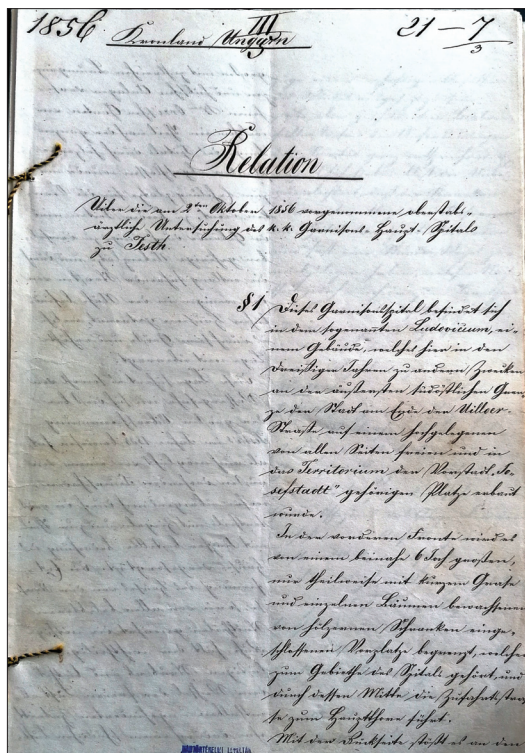 1856
Kronland Ungarn
III
5
21–7
3
Relation
Über die am 2ten Oktober 1856 vorgenommene oberstabs-
ärztliche Untersuchung des k. k. Garnisons-Haupt-Spitals
zu Pesth
§ 1 Dieses Garnisonsspital befindet sich
in dem sogenannten Ludoviceum, ei-
nem Gebäude, welches hier in den
dreißiger Jahren zu anderen Zwecken
an der äußersten südöstlichen Gren-
ze der Stadt am Ende der Üllöer-
Straße auf einem hochgelegenen
von allen Seiten freien und in
das Territorium der Vorstadt „Jo-
sefstadt" gehörigen Platze erbaut
wurde.
In der vorderen Fronte wird es
von einem beinahe 6 Joch großen,
nur theilweise mit kurzem Grase
und einzelnen Bäumen bewachsenen
von hölzernen Schranken einge-
schlossenen Vorplatze begrenzt, welcher
zum Gebiethe des Spitals gehört, und
durch dessen Mitte die Zufahrtsstra-
ße zum Hauptthore führt.
Mit der Rückseite stößt es an den